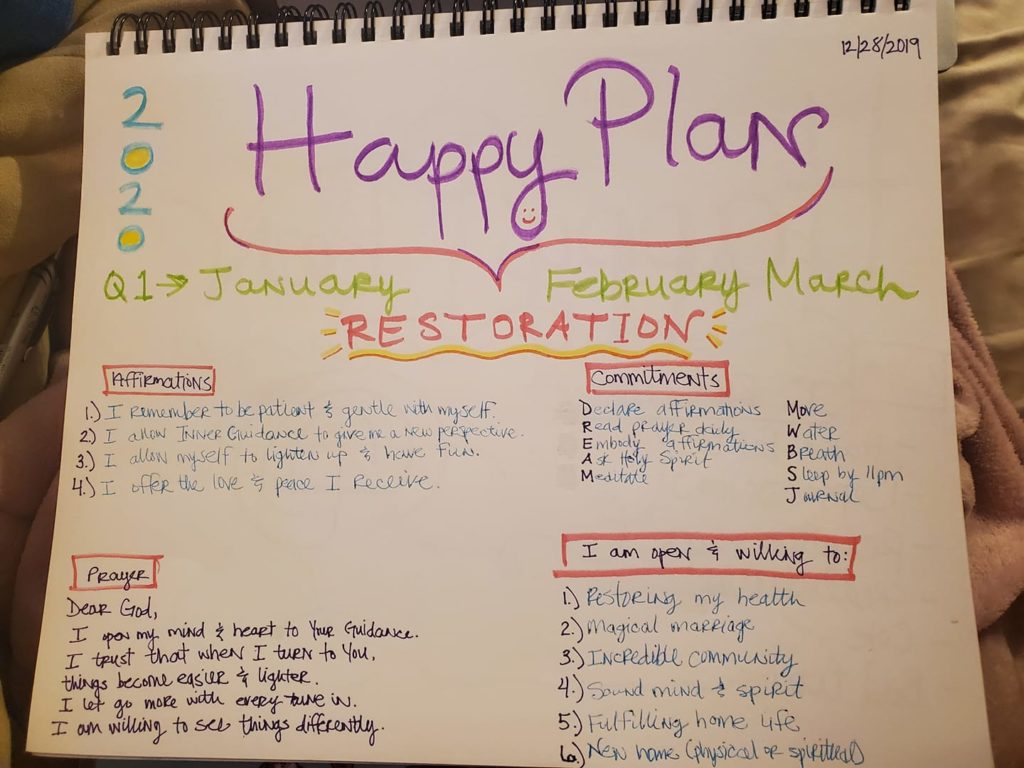 12/28/2019
2020
Happy Plan
Q1→ January February March
RESTORATION
Affirmations
1.) I remember to be patient & gentle with myself.
2) I allow INNER Guidance to give me a new perspective.
3.) I allow myself to lighten up & have fun.
4.) I offer the love & peace I receive.
Commitments
Declare affirmations
Read prayer daily
Embody affirmations
Ask Holy Spirit
Meditate
Move
Water
Breath
Sleep by 11pm
Journal
Prayer
Dear God,
I open my mind & heart to Your Guidance.
I trust that when I turn to You,
things become easier & lighter.
I let go more with every tune in.
I am willing to see things differently.
I am open & willing to:
1.) Restoring my health
2.) Magical marriage
3.) Incredible community
4.) Sound mind & spirit
5.) Fulfilling home life
6.) New home (physical or spiritual)